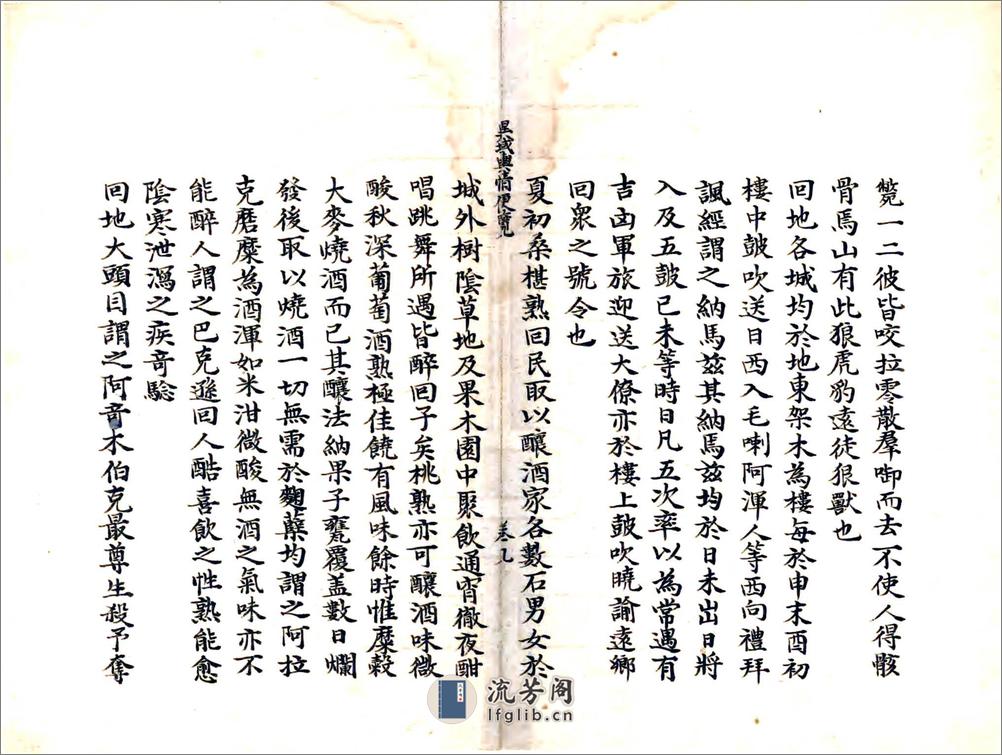 斃一二彼皆咬拉零散羣啣而去不使人得骸
骨馬山有此狼虎豹遠徒狠獸也
回地各城均於地東架木為樓每於申末酉初
樓中鼓吹送日西入毛喇阿渾人等西向禮拜
諷經謂之納馬兹其納馬兹均於日未出日將
入及五鼓已未等時日凡五次率以為常遇有
吉凶軍旅迎送大僚亦於樓上鼓吹曉諭遠鄉
回衆之號令也
異域輿情便覽
卷九
夏初桑椹熟回民取以釀酒家各數石男女於
城外樹陰草地及果木園中聚飲通宵徹夜酣
唱跳舞所遇皆醉回子矣桃熟亦可釀酒味微
酸秋深葡萄酒熟極佳饒有風味餘時惟糜穀
大麥燒酒而已其釀法納果子甕覆盖數日爛
發後取以燒酒一切無需於麴蘖均謂之阿拉
克磨糜為酒渾如米泔微酸無酒之氣味亦不
能醉人謂之巴克遜回人酷喜飲之性熟能愈
陰寒泄瀉之疾竒騐
回地大頭目謂之阿竒木伯克最尊生殺予奪
流芳阁
lfglib.cn